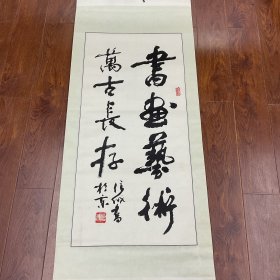 書画藝術
萬古長存
書
於京